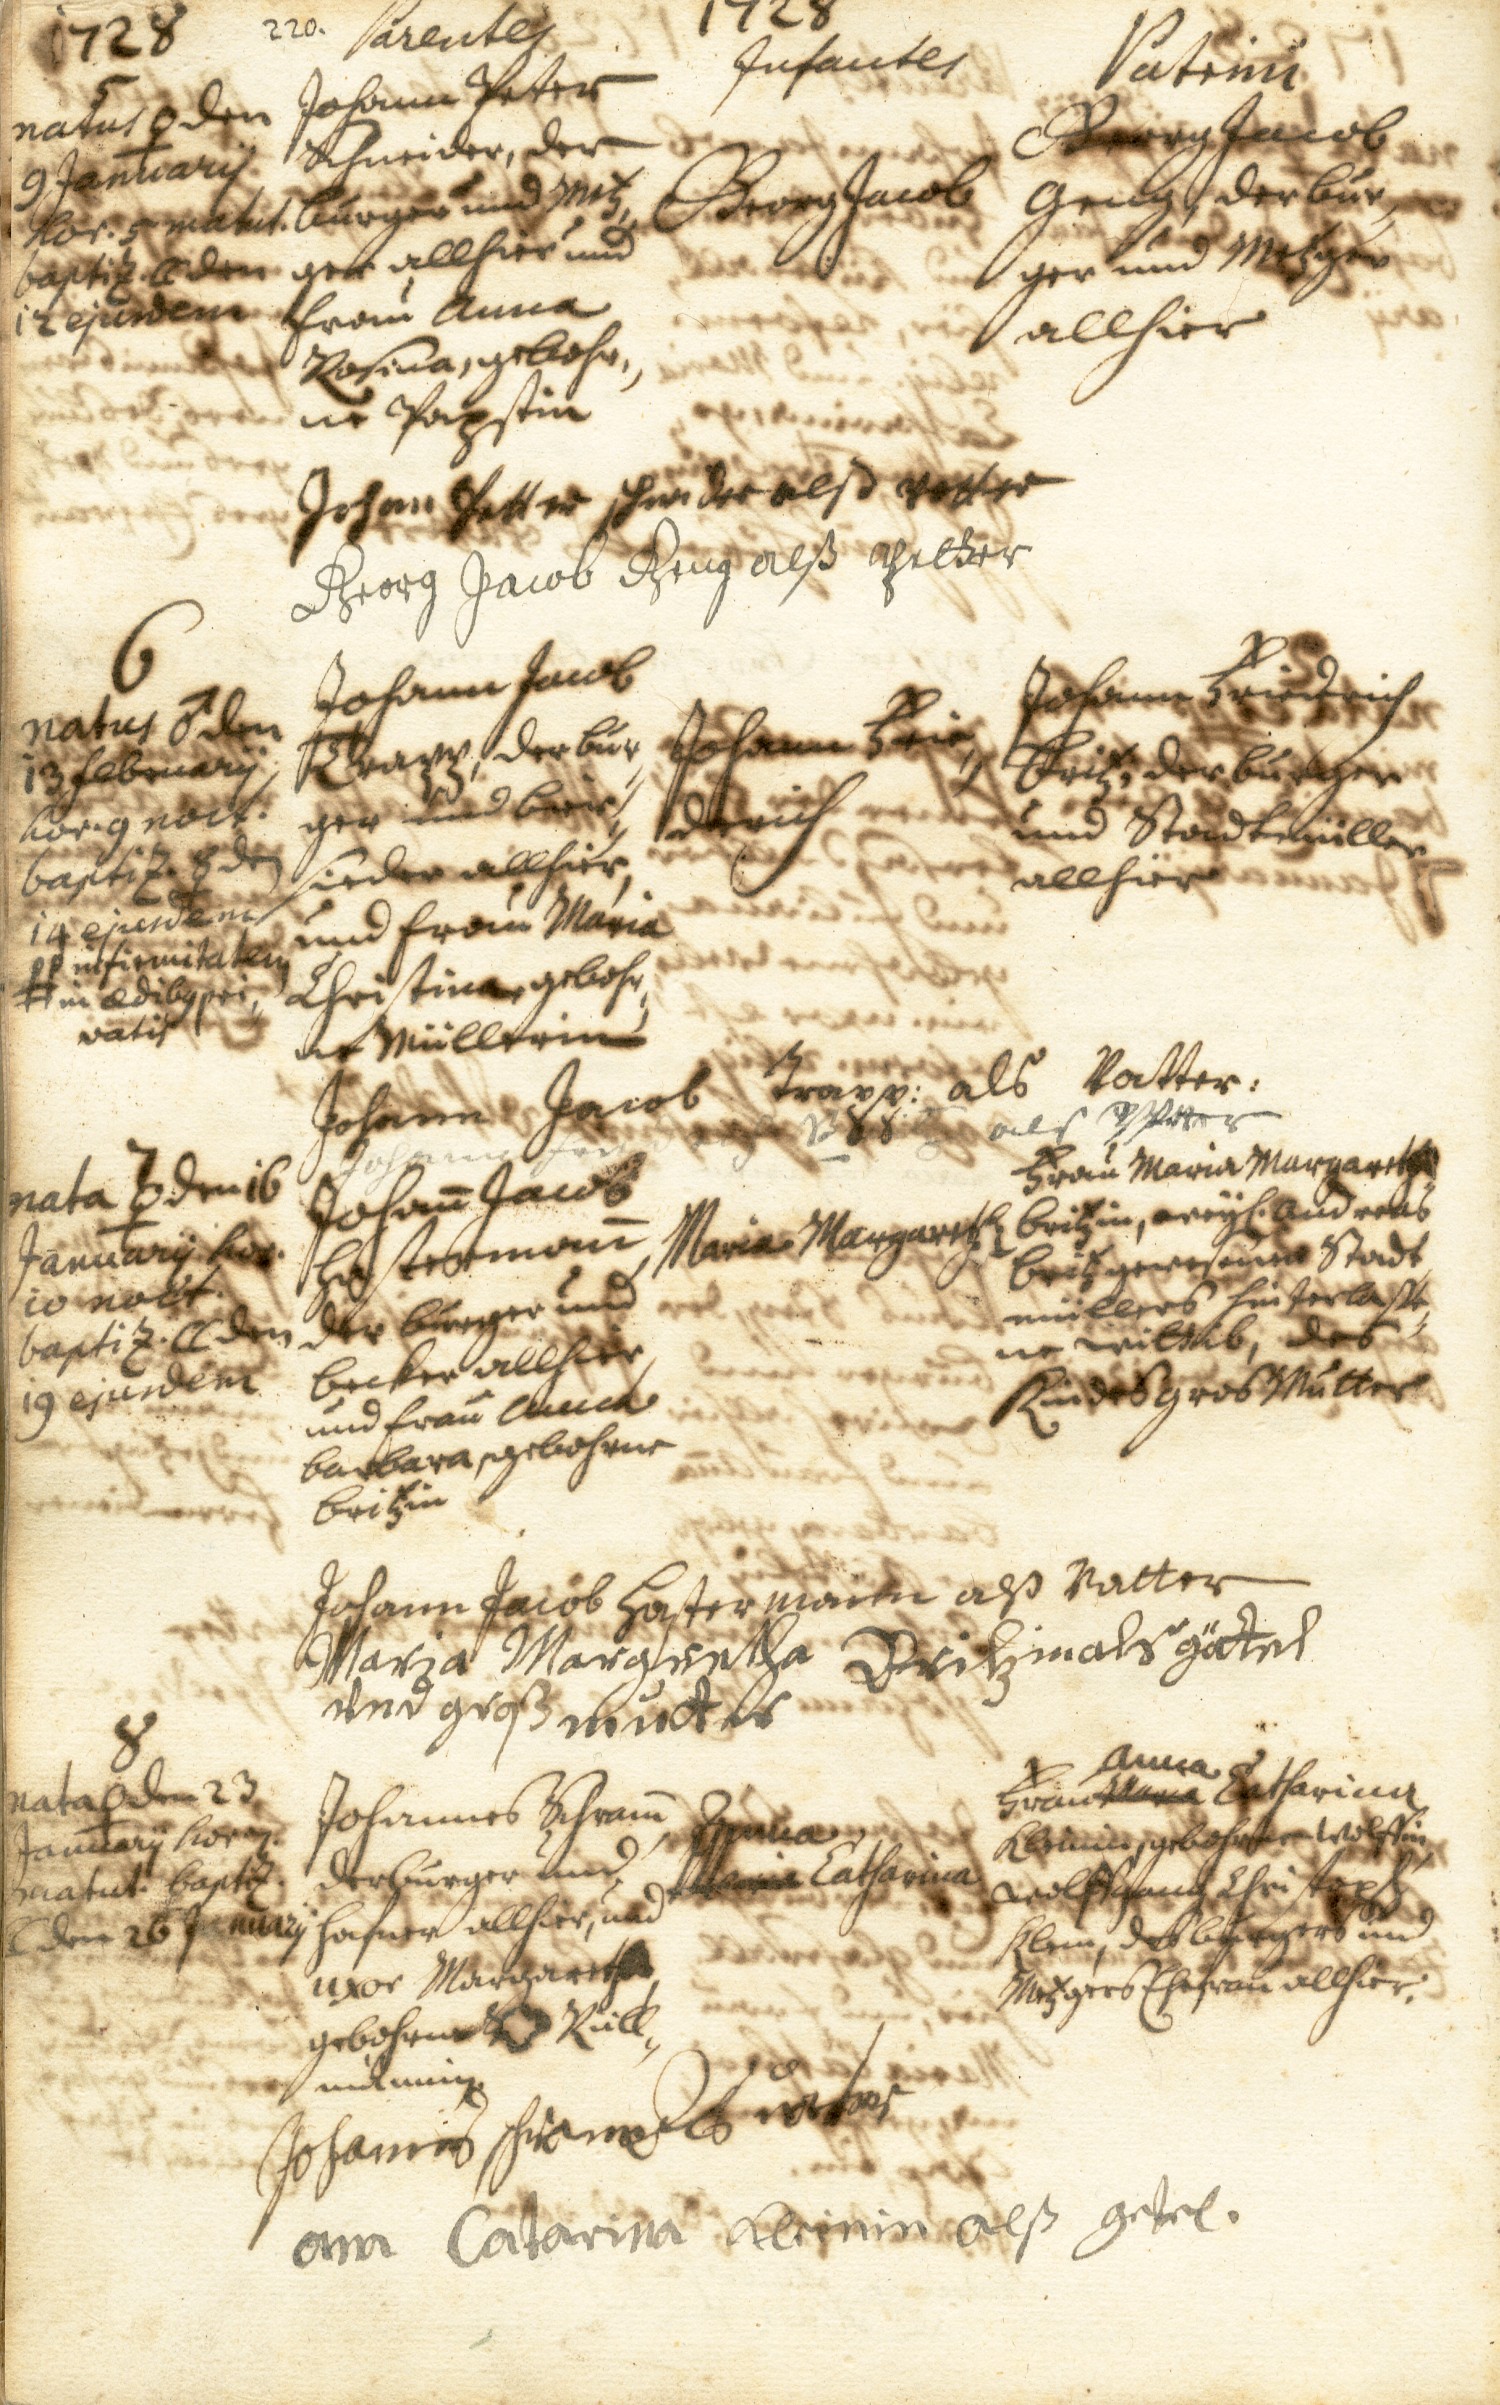 1728
220.
Parentes
1728
Infantes
Patrini
5
natus ♀ den
9 January.
hor. 5 matut.
baptiz. ☾ den
12 ejusdem
Johann Peter
Schneider, der
burger und Metz,
ger allhier und
frau Anna
Rosina, gebohr,
ne Papstin
Georg Jacob
Georg Jacob
Geng, der bur,
ger und Metzger
allhier
Johan Petter schnider alß vatter
Georg Jacob Geng alß
6
natus ♂ den
13 february
hor. 9 noct.
baptiz. ☿ den
14 ejusdem
pp infirmitatem
in ædibq pri,
vatis
Johann Jacob
Trapp, der bur,
ger und bier,
sieder allhier,
und frau Maria
Christina, gebohr,
ne Müllerin
Johann Frie,
derich
Johann Friedrich
Britz, der burger
und Stadtmüller
allhier
Johann Jacob Trapp: als Vatter:
Johann als
7
nata ♀ den 16
January hor.
10 noct.
baptiz. ☾ den
19 ejusdem
Johann̄ Jacob
Hastermann̄,
der burger und
becker allhier,
und frau Anna
barbara, gebohrne
britzin
Maria Margaretha
Frau Maria Margaretha
britzin, weyl. Andreas
britz gewesenen Stadt
müllers hinterlaße,
ne wittib, des
Kindes gros Mutter
Johann Jacob Hastermann alß Vatter
Maria Margretha Britzin als göttel
und groß mutter
8
nata ♀ den 23
January hor 7.
matut. baptiz.
☾ den 26 January
Johannes Schram̄,
der burger und
hafner allhier, und
uxor Margaretha
gebohrne Rüll,
männin.
Anna
Maria Catharina
Anna
Frau Maria Catharina
Kleinin, gebohrne Wolffin,
Wolffgang Christoph
Klein, des burgers und
Metzgers Ehefrau allhier.
Johannes schram als vatter
ana Catarina Kleinin alß getel.